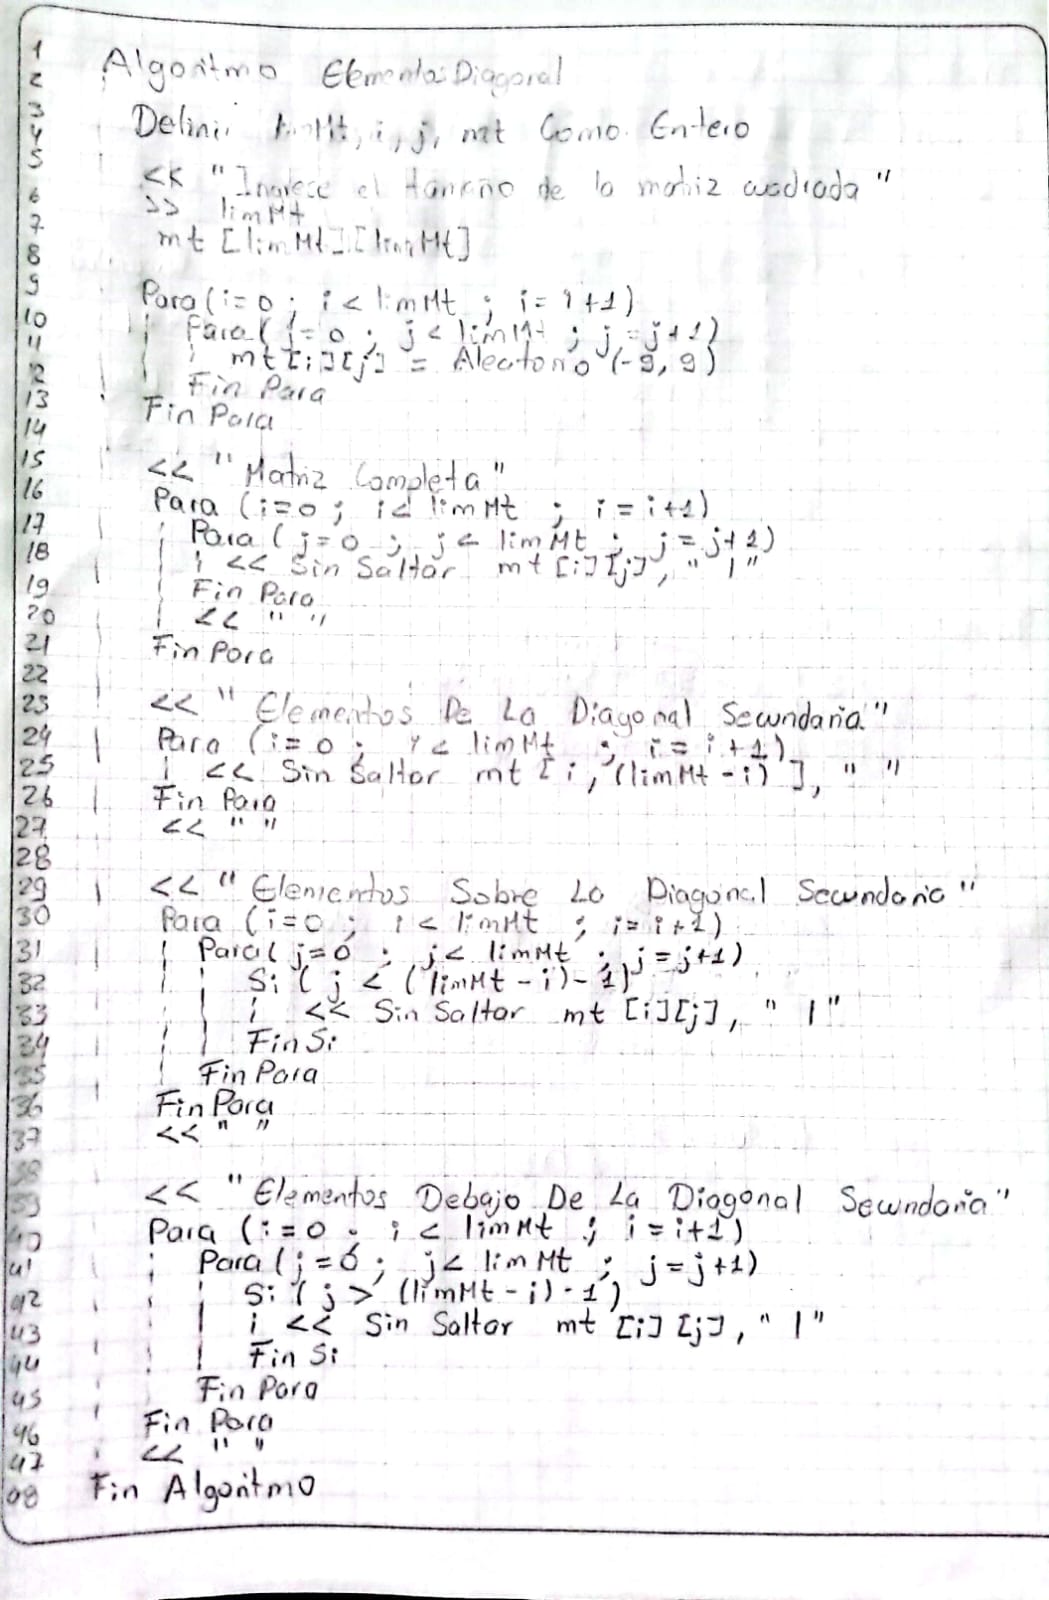 1
2 Algoritmo ElementosDiagonal
3
4 Definir limMt, i, j, mt Como Entero
5
6 << "Ingrese el tamaño de la matriz cuadrada"
7 >> limMt
8 mt [limMt][limMt]
9
10 Para (i=0 ; i < limMt ; i = i+1)
11 Para ( j=0 ; j < limMt ; j = j+1)
12 mt [i][j] = Aleatorio (-9, 9)
13 Fin Para
14 Fin Para
15
16 << "Matriz Completa"
17 Para (i=0 ; i < limMt ; i = i+1)
18 Para ( j=0 ; j < limMt ; j = j+1)
19 << Sin Saltar mt [i][j], " |"
20 Fin Para
21 << " "
22 Fin Para
23 << "Elementos De La Diagonal Secundaria"
24 Para (i=0 ; i < limMt ; i = i+1)
25 << Sin Saltar mt [i, (limMt - i) ], " "
26 Fin Para
27 << " "
28
29 << "Elementos Sobre La Diagonal Secundaria"
30 Para (i=0 ; i < limMt ; i = i+1)
31 Para ( j=0 ; j < limMt ; j = j+1)
32 Si ( j < (limMt - i) - 1)
33 << Sin Saltar mt [i][j], " |"
34 Fin Si
35 Fin Para
36 Fin Para
37 << " "
38
39 << "Elementos Debajo De La Diagonal Secundaria"
40 Para (i=0 ; i < limMt ; i = i+1)
41 Para ( j=0 ; j < limMt ; j = j+1)
42 Si ( j > (limMt - i) - 1)
43 << Sin Saltar mt [i][j], " |"
44 Fin Si
45 Fin Para
46 Fin Para
47 << " "
48 Fin Algoritmo